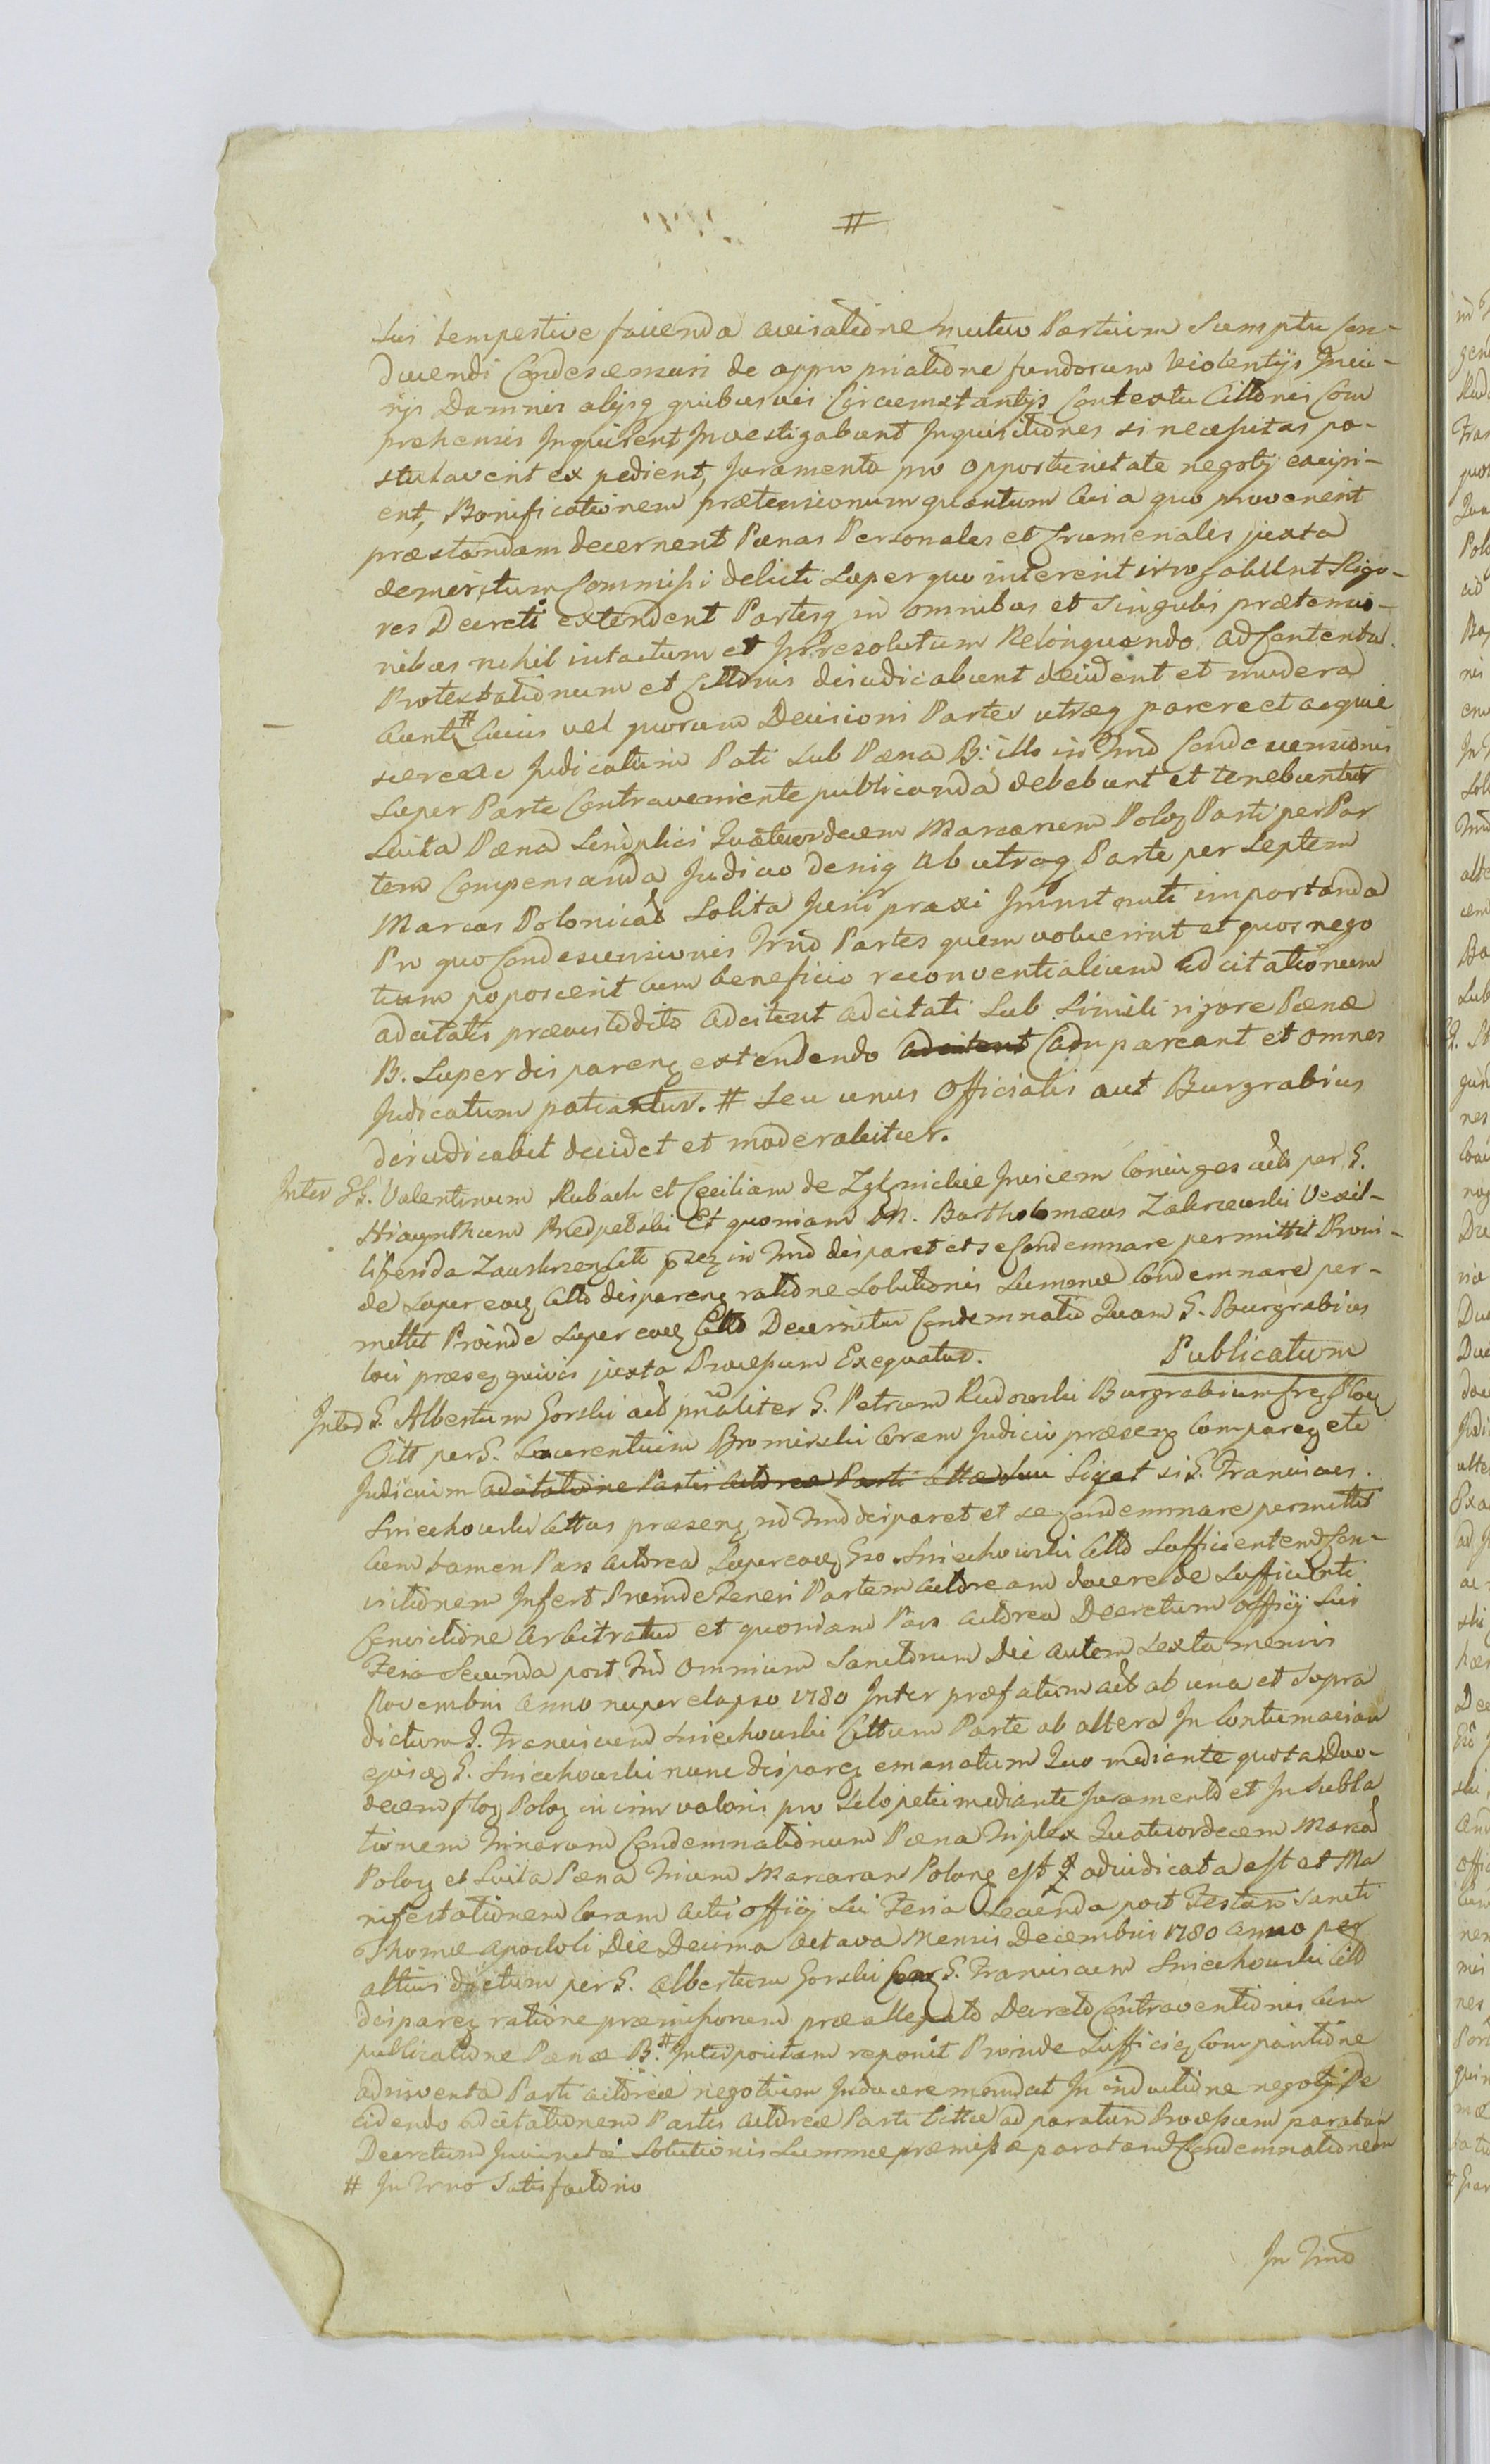 #
sui tempestive facienda avisatione mutuo Partium Sumptu Con-
ducendi Condescensuri de appropriatione fundorum Violentijs Iniu-
rijs Damnis alijsq quibusvis Circumstantijs Contextu Cittonis Com
prehensis Inquirent Investigabunt Inquisitiones si necessitas po-
stulaverit expedient, Juramenta pro opportunitate negotij excipi-
ent, Bonificationem prætensionum quantum cui a quo provenerit
præstandam decernent Pænas Personales et Crumenales juxta
demeritum Commissi delicti super quo intererit irrogabunt Rigo-
res Decreti extendent Partesq in omnibus et singulis prætensio-
nibus nihil intactum et Irresolutum Relinquendo ad Contenta
Protestationum et Cittonis dijudicabunt decident et modera
bunt # Cuius vel quorum Decisioni Partes utræq parere et acquie
scere ac Judicatum Pati sub Pæna B: illo in Tmo Condescensionis
super Parte Contraveniente publicanda debebunt et tenebuntur
Luita Pæna Simplici Quatuordecem Marcarum Poloq Parti per Par
tem Compensanda Judicio deniq ab utraq Parte per Septem
Marcas Polonicas Solita Juris praxi importanda
Pro quo Condescensionis Tmo Partes quem voluerint et quos nego
tium poposcerit cum beneficio reconventialium adcitationum
adcitatis præcustodito adcitent adcitati sub simili rigore Pænæ
B. super disparenq extendendo adcitent pareant et omnes
Judicatum patiantur. # seu unus Officialis aut Burgrabius
dijudicabit decidet et moderabitur.
Inter GG. Valentinum Rubach et Ceciliam de Invicem Coniuges acts per G.
Hiacynthum Et quoniam M. Bartholomæus Zakrzewski Vexil-
liferida Zauskrzenq Citt in Tmo disparet et se Condemnare permittit Proin-
de super eoq Citto disparenq ratione Solutionis Summæ Condemnare per-
mittit Proinde super eoq Citto Decernitur Condemnatio Quam G. Burgrabius
loci præsenq quivis juxta Processum Exequatur. Publicatum
Inter G. Albertum Gorski act pnaliter G. Petrum Rudowski Burgrabium
Citt per G. Laurentium Bromirski Coram Judicio præsenq Comparenq etc
Judicium adcitatione Partis Actoreæ Parti Cittæ Liget si G. Franciscus
Sniechowski Cittus præsenq in Tmo disparet et se Condemnare permittit
Cum tamen Pars Actorea super eoq Gso Sniechowski Citto Sufficientem Con-
victionem Infert Proinde teneri Partem Actoream docere de Sufficienti
Convictione arbitratur et quoniam Pars Actorea Decretum Officij sui
Feria Secunda post Omnium Sanctorum Die autem Sexta mensis
Novembris Anno nuper elapso 1780 Inter præfatum act ab una et supra
dictum G. Franciscum Sniechowski Cittum Parte ab altera In Contumaciam
ejusdeq G. Sniechowski nunc disparenq emanatum Quo mediante quota Duo-
decem floq Poloq in vim valoris pro Sclopeti mediante Juramento et In subla
tionem Trinarum Condemnationum Pæna Triplex Quatuordecem Marcas
Poloq et Luita Pæna Trium Marcarum Polonq est adjudicata est et Ma
nifestationem Coram Actis Officij sui Feria Secunda post Festum Sancti
Thomæ Apostoli Die Decima Octava Mensis Decembris 1780 Anno per
altius dictum per G. Albertum Gorski G. Franciscum Sniechowski Citto
disparenq ratione præmissorum præallegato Decreto Contraventionis Cum
publicatione Pænæ B. # Interpositam reponit Proinde Sufficienq Compartione
adinventa Parti Actoreæ negotium Inducere mandat In inductione negotij De
cidendo adcitationem Partis Actoreæ Parti Cittæ ad paratum Processum paratum
Decretum Solutionis Summæ præmissæ paratam Condemnationem
# In Tmo Satisfactorio
In Tmo